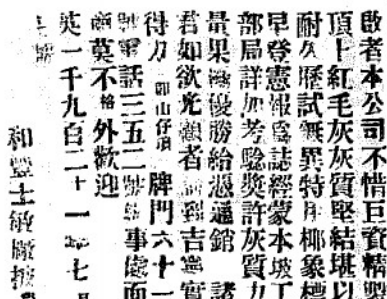 啟者本公司不惜巨資精製
頂上紅毛灰灰質堅結堪以
耐久歷試無異特用椰象標
早登憲報為誌經蒙本坡工
部局詳加考驗獎許灰質力
量果優勝給憑通銷 諸
君如欲光顧者請到吉寧實
得力 即山仔頂 牌門六十一
電話三五二 事處面
商莫不格外歡迎
英一千九百二十一年七月
和豐士敏